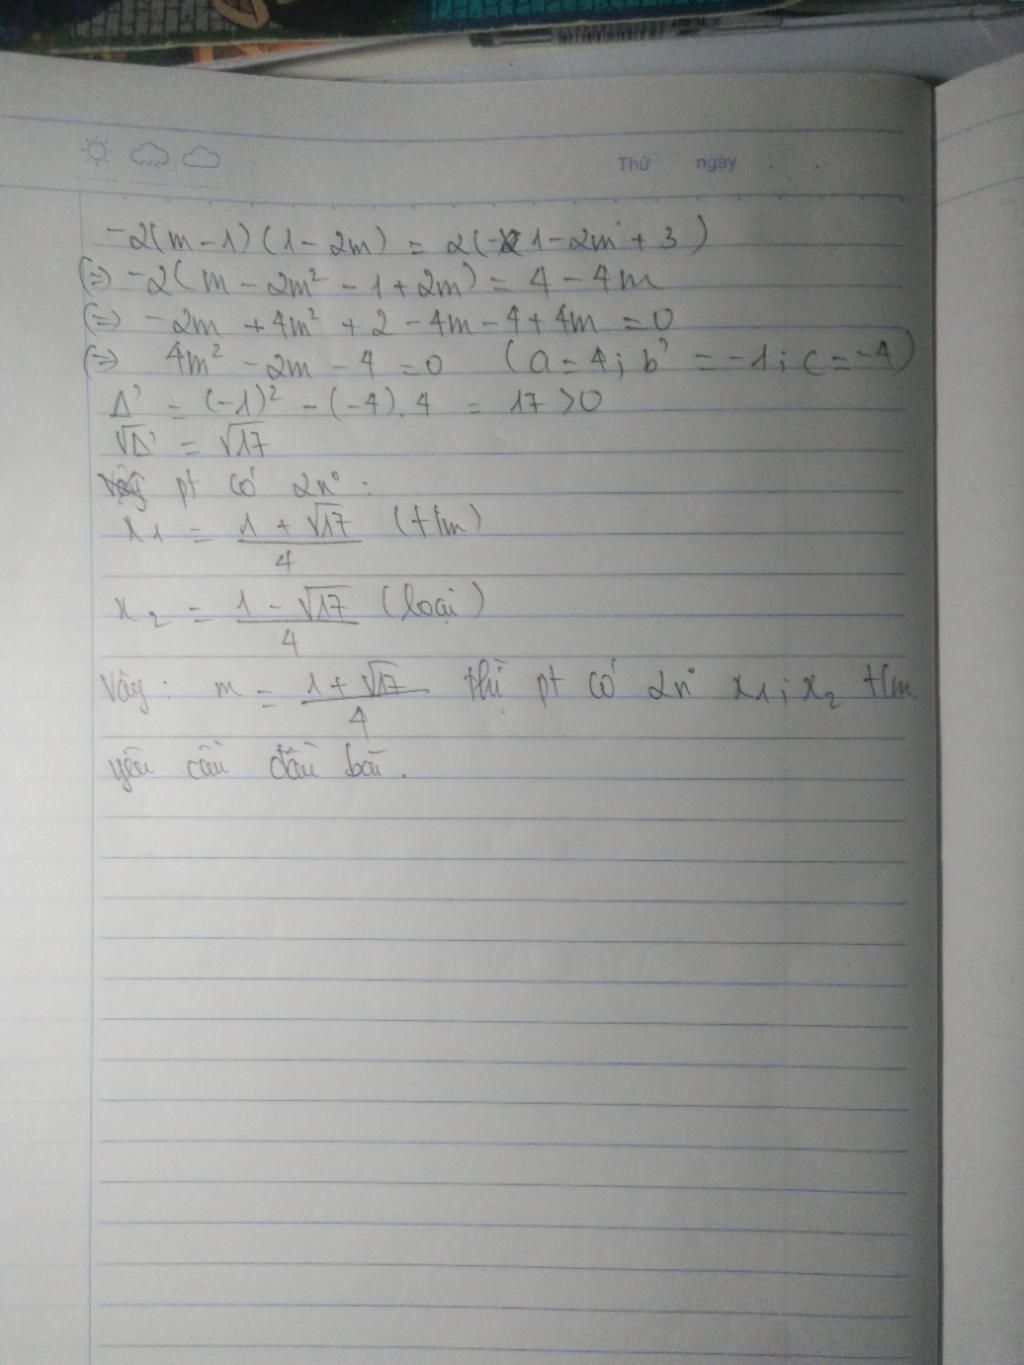 Thứ ngày
-2(m-1)(1-2m) = 2(-1-2m+3)
(=) -2(m - 2m² - 1 + 2m) = 4 - 4m
(=) -2m + 4m² + 2 - 4m - 4 + 4m = 0
(=) 4m² - 2m - 4 = 0 (a = 4; b' = -1; c = -4)
Δ' = (-1)² - (-4).4 = 17 > 0
√Δ' = √17
pt có 2n°:
x₁ = (1 + √17)/4 (t/m)
x₂ = (1 - √17)/4 (loại)
Vậy: m = (1 + √17)/4 thì pt có 2n° x₁; x₂ t/m
yêu cầu đầu bài.